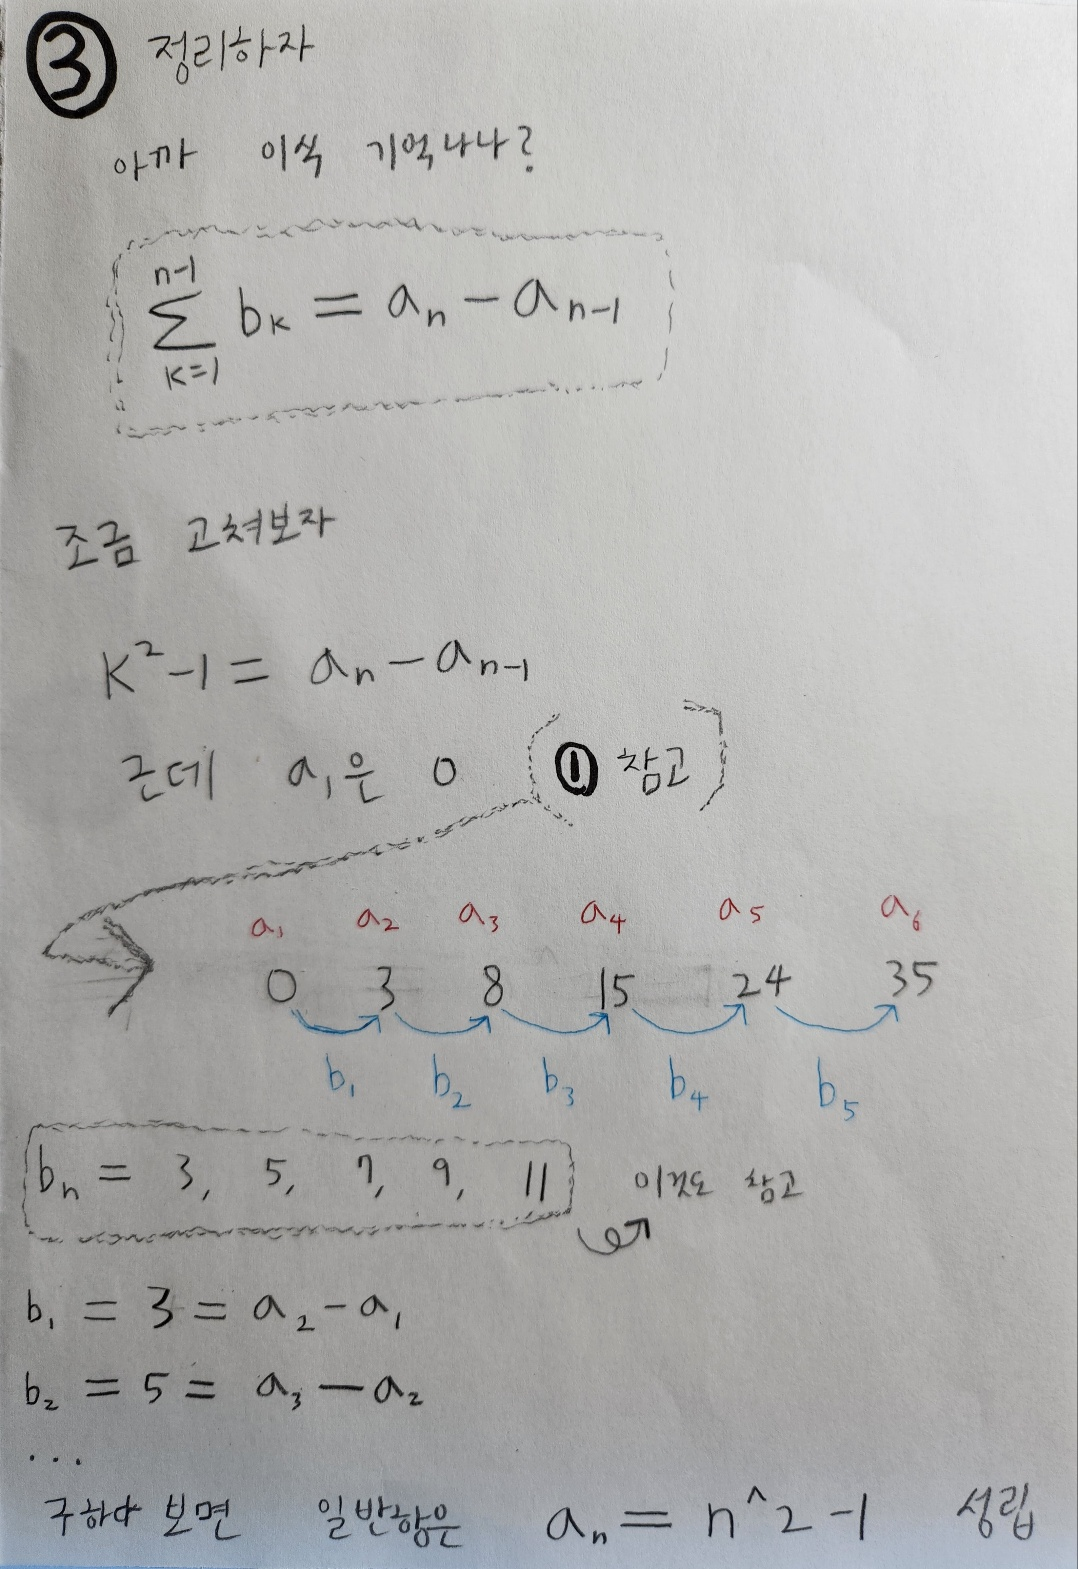 ③ 정리하자
아까 이식 기억나나?
n-1
∑ bₖ = aₙ - aₙ₋₁
k=1
조금 고쳐보자
k²-1 = aₙ - aₙ₋₁
근데 a₁은 0 (① 참고)
a₁ a₂ a₃ a₄ a₅ a₆
0 3 8 15 24 35
b₁ b₂ b₃ b₄ b₅
bₙ = 3, 5, 7, 9, 11 이것도 참고
b₁ = 3 = a₂ - a₁
b₂ = 5 = a₃ - a₂
...
구하다 보면 일반항은 aₙ = n^2-1 성립